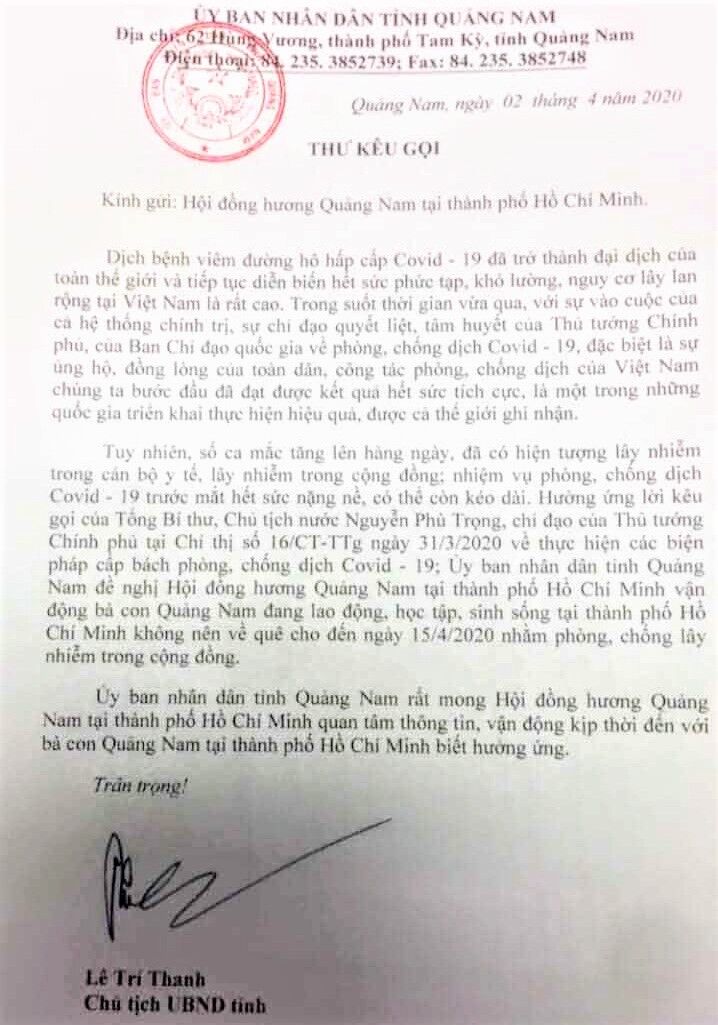 ỦY BAN NHÂN DÂN TỈNH QUẢNG NAM
Địa chỉ: 62 Hùng Vương, thành phố Tam Kỳ, tỉnh Quảng Nam
Điện thoại: 84. 235. 3852739; Fax: 84. 235. 3852748
Quảng Nam, ngày 02 tháng 4 năm 2020
THƯ KÊU GỌI
Kính gửi: Hội đồng hương Quảng Nam tại thành phố Hồ Chí Minh.
Dịch bệnh viêm đường hô hấp cấp Covid - 19 đã trở thành đại dịch của
toàn thế giới và tiếp tục diễn biến hết sức phức tạp, khó lường, nguy cơ lây lan
rộng tại Việt Nam là rất cao. Trong suốt thời gian vừa qua, với sự vào cuộc của
cả hệ thống chính trị, sự chỉ đạo quyết liệt, tâm huyết của Thủ tướng Chính
phủ, của Ban Chỉ đạo quốc gia về phòng, chống dịch Covid - 19, đặc biệt là sự
ủng hộ, đồng lòng của toàn dân, công tác phòng, chống dịch của Việt Nam
chúng ta bước đầu đã đạt được kết quả hết sức tích cực, là một trong những
quốc gia triển khai thực hiện hiệu quả, được cả thế giới ghi nhận.
Tuy nhiên, số ca mắc tăng lên hàng ngày, đã có hiện tượng lây nhiễm
trong cán bộ y tế, lây nhiễm trong cộng đồng; nhiệm vụ phòng, chống dịch
Covid - 19 trước mắt hết sức nặng nề, có thể còn kéo dài. Hưởng ứng lời kêu
gọi của Tổng Bí thư, Chủ tịch nước Nguyễn Phú Trọng, chỉ đạo của Thủ tướng
Chính phủ tại Chỉ thị số 16/CT-TTg ngày 31/3/2020 về thực hiện các biện
pháp cấp bách phòng, chống dịch Covid - 19; Ủy ban nhân dân tỉnh Quảng
Nam đề nghị Hội đồng hương Quảng Nam tại thành phố Hồ Chí Minh vận
động bà con Quảng Nam đang lao động, học tập, sinh sống tại thành phố Hồ
Chí Minh không nên về quê cho đến ngày 15/4/2020 nhằm phòng, chống lây
nhiễm trong cộng đồng.
Ủy ban nhân dân tỉnh Quảng Nam rất mong Hội đồng hương Quảng
Nam tại thành phố Hồ Chí Minh quan tâm thông tin, vận động kịp thời đến với
bà con Quảng Nam tại thành phố Hồ Chí Minh biết hưởng ứng.
Trân trọng!
Lê Trí Thanh
Chủ tịch UBND tỉnh